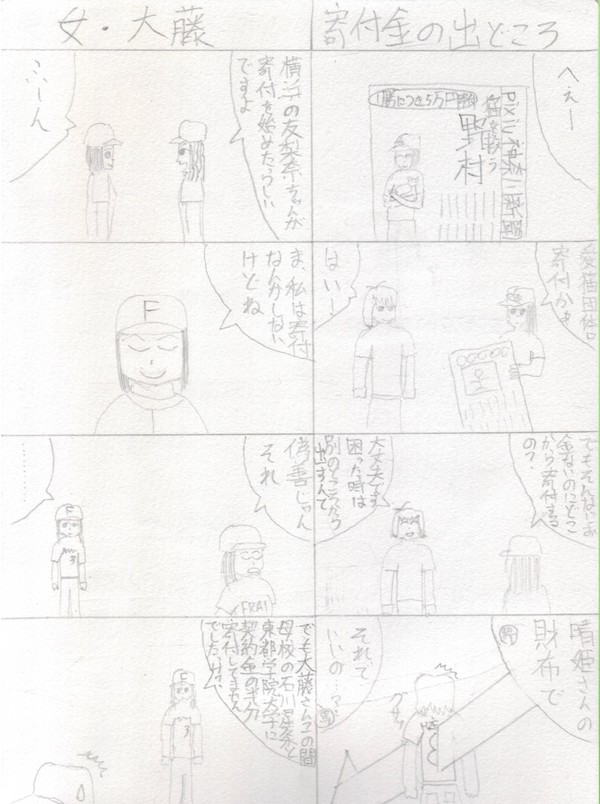 寄付金の出どころ
へぇー
野村
愛猫団体に
寄付かぁ
はいー！
でもそんなにお
金ないのにどこ
から寄付する
の？
大丈夫です
困った時は
別のところから
出すんで
晴姫さんの
財布で
それで
いいの…？
グサッ
女・大藤
横浜の友梨奈ちゃんが
寄付を始めたらしい
ですよ
ふーん
ま、私は寄付
なんかしない
けどね
F
偽善じゃん
それ
………
でも大藤さんこの間
母校の石川星稜と
東都学院大学に
契約金の半分
寄付してません
でした…？
3